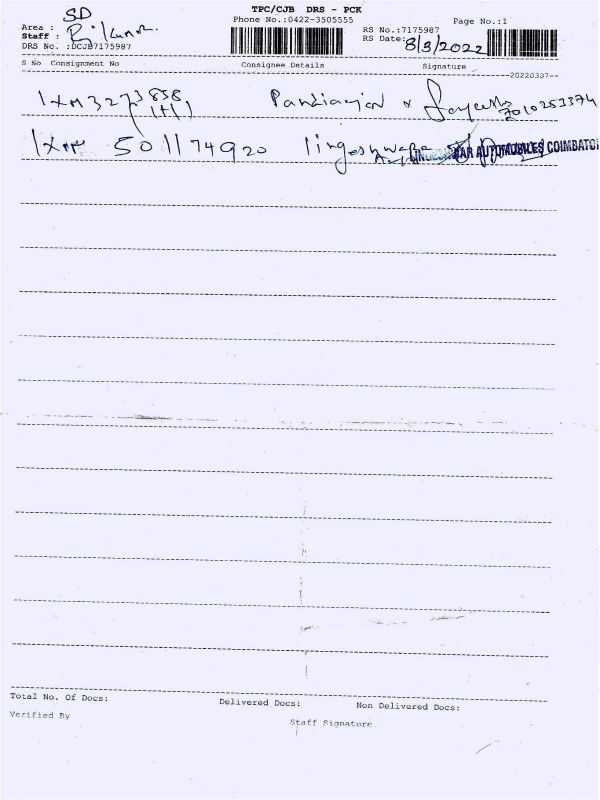 TPC/CJB DRS - PCK
Phone No.:0422-3505555
Page No.:1
SD
Area :
Staff : Rajkumar
DRS No. :DCJB7175987
RS No.:7175987
RS Date: 8/3/2022
S No Consignment No Consignee Details Signature
20220307
Pandiarajan
7010253374
501174920 lingeshwara
AUTOMOBILES COIMBATO
Total No. Of Docs: Delivered Docs: Non Delivered Docs:
Verified By Staff Signature